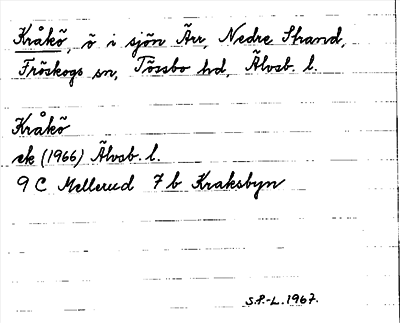 Kråkö, ö i sjön Ärr, Nedre Strand,
Fröskogs sn, Tössbo hd, Älvsb l.
Kråkö
ek (1966) Älvsb. l.
9 C Mellerud 7 b Kraksbyn
S.P.-L. 1967.